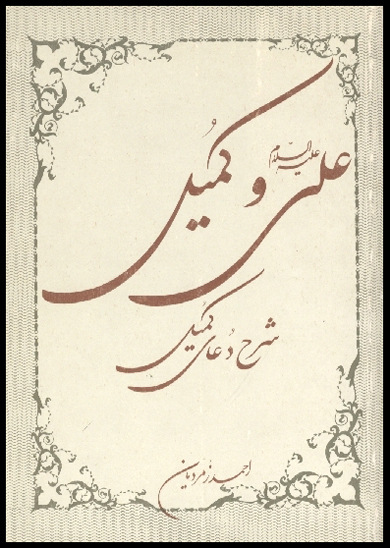 علی علیه السلام و کمیل
شرح دعای کمیل
احمد زمردیان